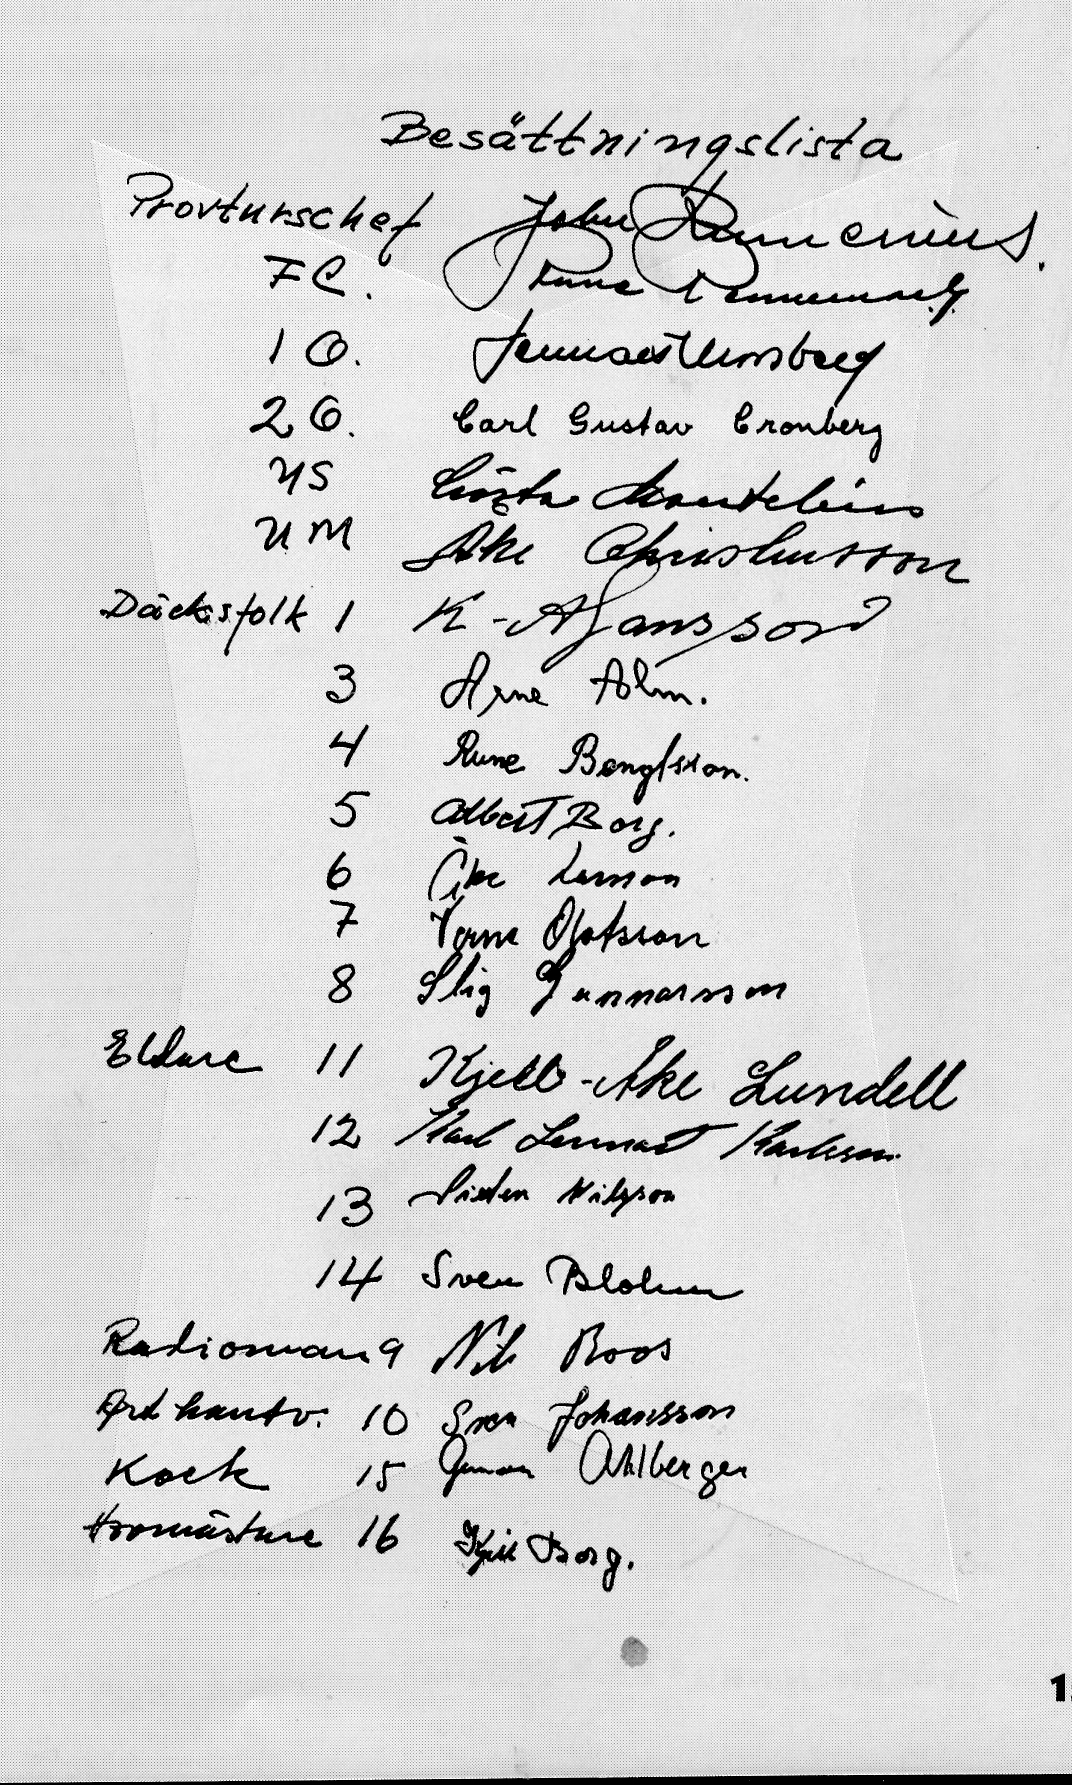 Besättningslista
Provturschef John
FC. Rune
1 O. Lennart
2 O. Carl Gustav Cronberg
US Gösta
UM Åke
Däcksfolk 1 K-A Jansson
3 Arne Alm.
4 Rune Bengtsson.
5 Albert Borg.
6 Åke
7 Olofsson
8 Stig Gunnarsson
Eldare 11 Kjell-Åke Lundell
12 Karl Lennart Karlsson
13 Nilsson
14 Sven Blohm
Radioman 9 Nils Roos
hantv. 10 Sven Johansson
Kock 15 Gunnar Ahlberger
16 Kjell Borg.
1.